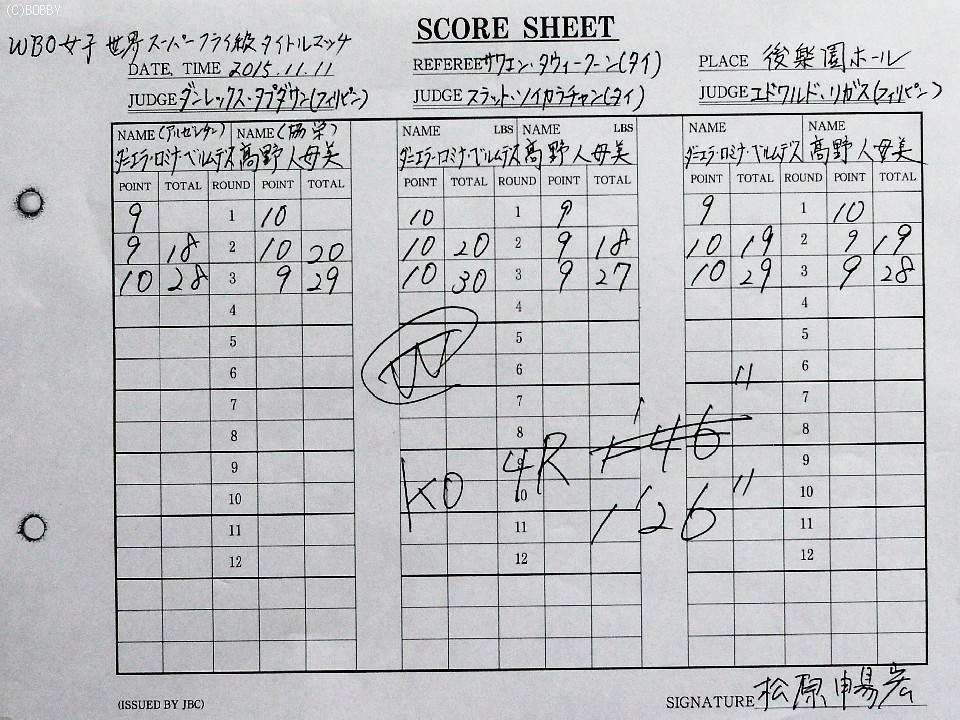 (C)BOBBY
SCORE SHEET
WBO女子 世界スーパーフライ級タイトルマッチ
DATE, TIME 2015.11.11
REFEREE サワエン・タウィークーン(タイ)
PLACE 後楽園ホール
JUDGE ダンレックス・タプダサン(フィリピン)
JUDGE スラット・ソイカラチャン(タイ)
JUDGE エドワルド・リガス(フィリピン)
NAME (アルゼンチン) NAME (協栄) NAME LBS NAME LBS NAME NAME
ダニエラ・ロミナ・ベルムデス 高野人母美 ダニエラ・ロミナ・ベルムデス 高野人母美 ダニエラ・ロミナ・ベルムデス 高野人母美
POINT TOTAL ROUND POINT TOTAL POINT TOTAL ROUND POINT TOTAL POINT TOTAL ROUND POINT TOTAL
9 1 10 10 1 9 9 1 10
9 18 2 10 20 10 20 2 9 18 10 19 2 9 19
10 28 3 9 29 10 30 3 9 27 10 29 3 9 28
4 4 4
5 5 5
W
6 6 6
7 7 7
8 8 8
1'46"
9 9 9
KO 4R
10 10 10
1'26"
11 11 11
12 12 12
(ISSUED BY JBC)
SIGNATURE 松原暢宏